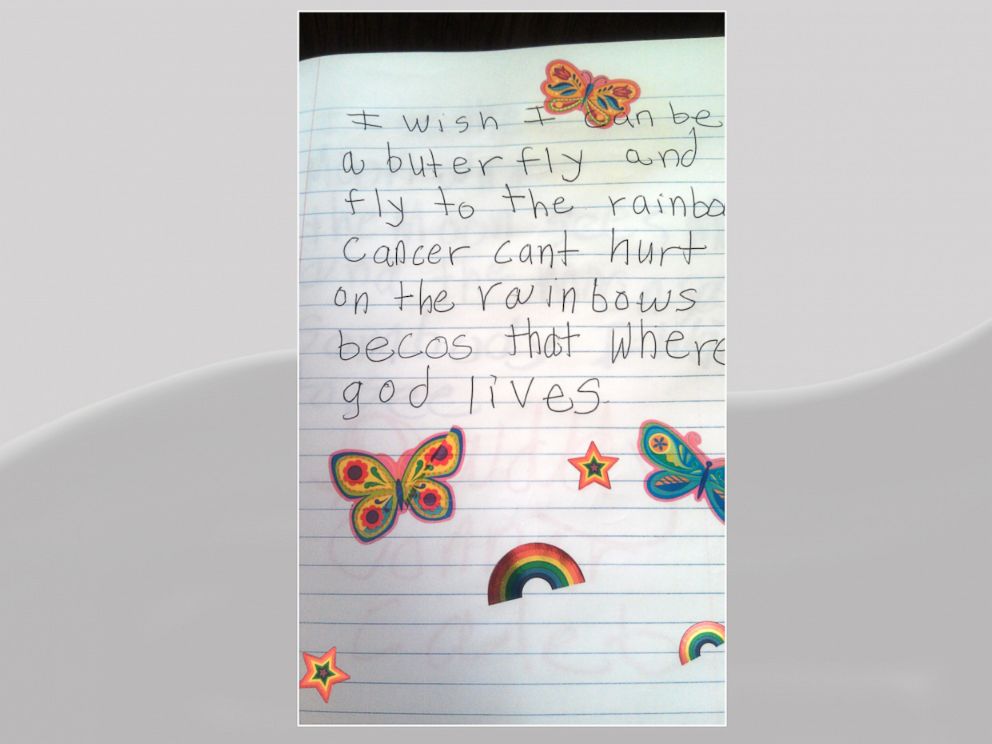 I wish I can be
a buterfly and
fly to the rainbo
Cancer cant hurt
on the rainbows
becos that where
god lives